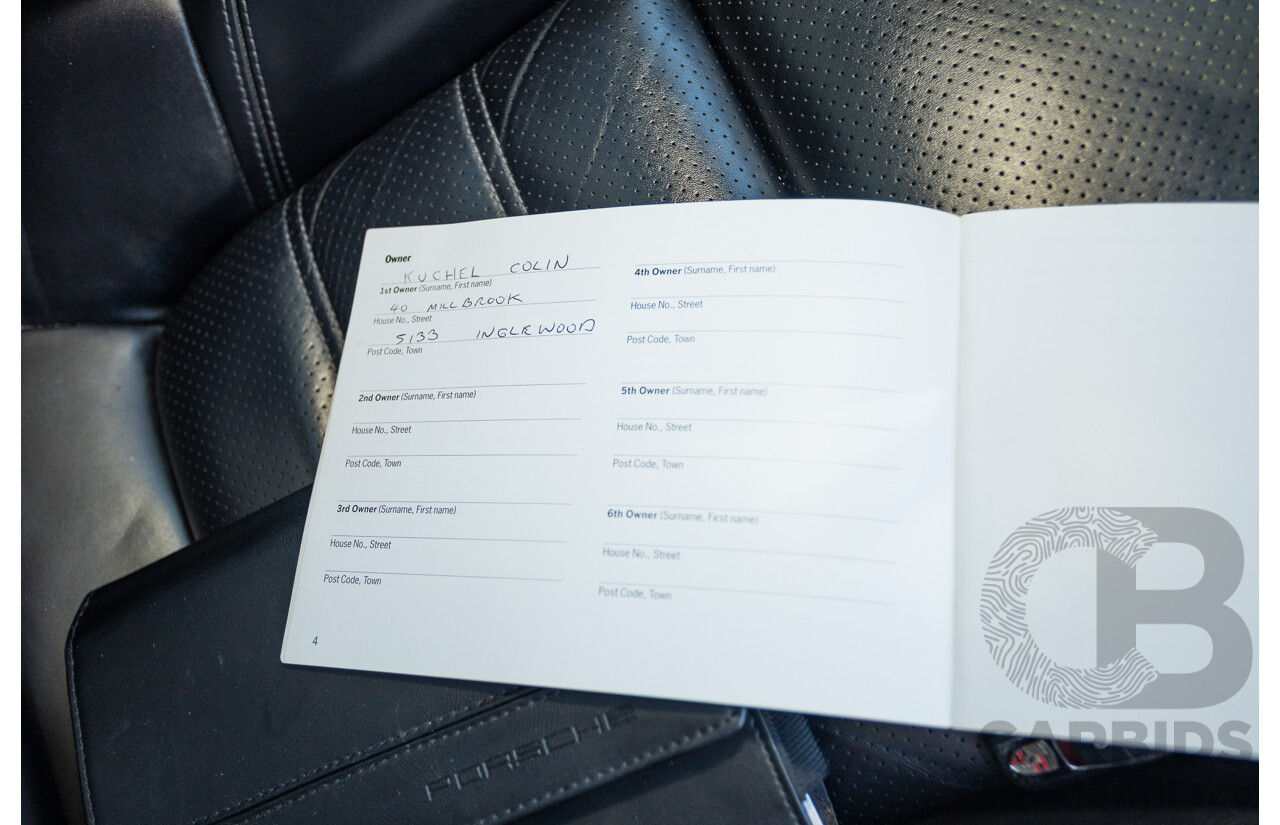 Owner
KUCHEL COLIN
1st Owner (Surname, First name)
40 MILLBROOK
House No., Street
5133 INGLEWOOD
Post Code, Town
2nd Owner (Surname, First name)
House No., Street
Post Code, Town
3rd Owner (Surname, First name)
House No., Street
Post Code, Town
4
4th Owner (Surname, First name)
House No., Street
Post Code, Town
5th Owner (Surname, First name)
House No., Street
Post Code, Town
6th Owner (Surname, First name)
House No., Street
Post Code, Town
PORSCHE
CB
CARBIDS